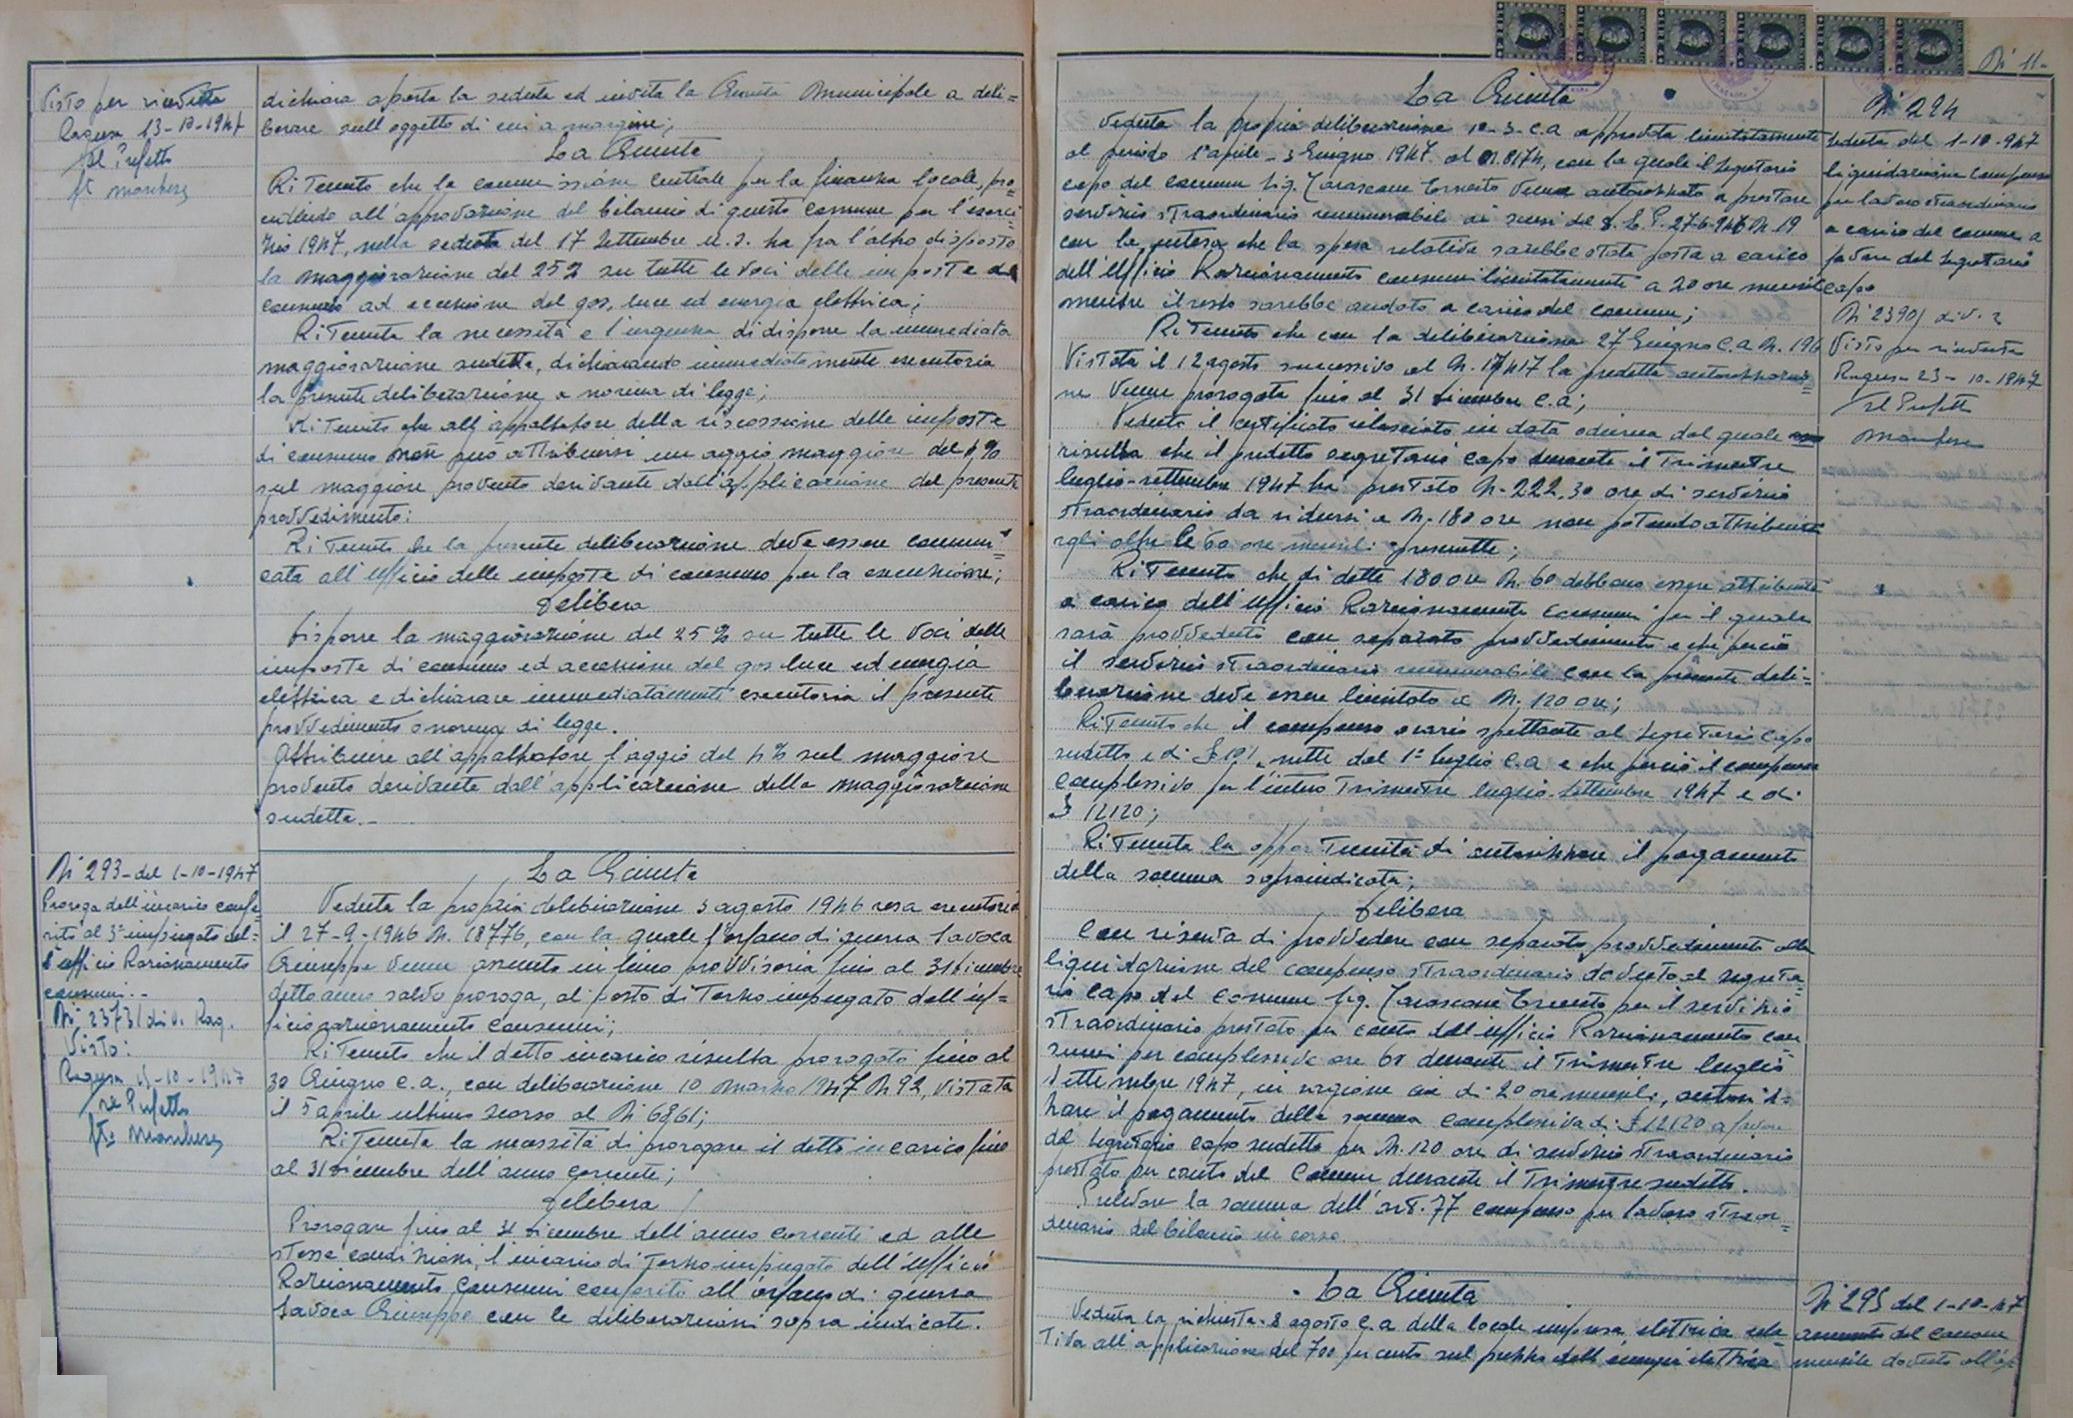 Visto per ricevuta
Ragusa 13-10-1947
Il Prefetto
dichiara aperta la seduta ed invita la Giunta Municipale a deli=
berare sull'oggetto di cui a margine;
La Giunta
Ritenuto che la commissione centrale per la finanza locale, pro=
cedendo all'approvazione del bilancio di questo comune per l'eserci
zio 1947, nella seduta del 17 Settembre u.s. ha fra l'altro disposto
la maggiorazione del 25% su tutte le voci delle imposte di
consumo ad eccezione del gas, luce ed energia elettrica;
Ritenuta la necessità e l'urgenza di disporre la immediata
maggiorazione sudetta, dichiarando immediatamente esecutoria
la presente deliberazione a norma di legge;
Ritenuto che all'appaltatore della riscossione delle imposte
di consumo non può attribuirsi un aggio maggiore del 4%
sul maggiore provento derivante dall'applicazione del presente
provvedimento;
Ritenuto che la presente deliberazione deve essere comuni=
cata all'ufficio delle imposte di consumo per la esecuzione;
Delibera
Disporre la maggiorazione del 25% su tutte le voci delle
imposte di consumo ed accezione del gas luce ed energia
elettrica e dichiarare immediatamente esecutoria il presente
provvedimento a norma di legge.
Attribuire all'appaltatore l'aggio del 4% sul maggiore
provento derivante dall'applicazione della maggiorazione
sudetta.-
N. 293-del 1-10-1947
Proroga dell'incarico confe
rito al 3° impiegato del=
l'ufficio Razionamento
consumi.-
N. 23731 div. Rag.
Visto:
Ragusa 13-10-1947
Il Prefetto
La Giunta
Veduta la propria deliberazione 3 agosto 1946 resa esecutoria
il 27-9-1946 N. 18776, con la quale l'orfano di guerra Savoca
Giuseppe venne assunto in linea provvisoria fino al 31 dicembre
detto anno salvo proroga, al posto di Terzo impiegato dell'uf=
ficio razionamento consumi;
Ritenuto che il detto incarico risulta prorogato fino al
30 Giugno c.a., con deliberazione 10 marzo 1947 N 92, vistata
il 5 aprile ultimo scorso al N. 6861;
Ritenuta la necessità di prorogare il detto incarico fino
al 31 dicembre dell'anno corrente;
Delibera
Prorogare fino al 31 dicembre dell'anno corrente ed alle
stesse condizioni, l'incarico di Terzo impiegato dell'Ufficio
Razionamento Consumi conferito all'orfano di guerra
Savoca Giuseppe con le deliberazioni sopra indicate.
N. 11-
La Giunta
Veduta la propria deliberazione 10-3-c.a approvata limitatamente
al periodo 1° aprile - 3 Giugno 1947 al N. 8174, con la quale il Segretario
capo del comune Sig. Tarascone Ernesto venne autorizzato a prestare
servizio straordinario remunerabile ai sensi del 27-6-946 N. 19
con la intesa che la spesa relativa sarebbe stata posta a carico
dell'Ufficio Razionamento consumi limitatamente a 20 ore mensili
mentre il resto sarebbe andato a carico del comune;
Ritenuto che con la deliberazione 27 Giugno c.a N. 196
Vistata il 12 agosto successivo al N. 17417 la predetta autorizzazio=
ne venne prorogata fino al 31 dicembre c.a;
Veduto il certificato rilasciato in data odierna dal quale
risulta che il predetto segretario capo durante il Trimestre
luglio-settembre 1947 ha prestato N. 222,30 ore di servizio
straordinario da ridursi a N. 180 ore non potendo attribuire
egli oltre le 60 ore mensili prescritte;
Ritenuto che di dette 180 ore N. 60 debbono essere attribuite
a carico dell'Ufficio Razionamento consumi per il quale
sarà provveduto con separato provvedimento e che perciò
il servizio straordinario remunerabile con la presente deli=
berazione deve essere limitato a N. 120 ore;
Ritenuto che il compenso orario spettante al Segretario Capo
sudetto è di £ 101, nette dal 1° luglio c.a e che perciò il compenso
complessivo per l'intero Trimestre luglio-Settembre 1947 è di
£ 12120;
Ritenuta la opportunità di autorizzare il pagamento
della somma sopraindicata;
Delibera
Con riserva di provvedere con separato provvedimento alla
liquidazione del compenso straordinario dovuto al segreta=
rio capo del comune Sig. Tarascone Ernesto per il servizio
straordinario prestato per conto dell'ufficio Razionamento con
sumi per complessive ore 60 durante il Trimestre luglio
Settembre 1947, in ragione cioè di 20 ore mensili, autoriz=
zare il pagamento della somma complessiva di £ 12120 a favore
del Segretario capo sudetto per N. 120 ore di servizio straordinario
prestato per conto del Comune durante il Trimestre sudetto.
Prelevare la somma dell'art. 77 compenso per lavoro straor=
dinario del bilancio in corso.
N. 294
Seduta del 1-10-947
liquidazione compenso
per lavoro straordinario
a carico del comune a
favore del Segretario
capo
N. 23901 div. 2
Visto per ricevuta
Ragusa 23-10-1947
Il Prefetto
La Giunta
Veduta la richiesta 8 agosto c.a della locale impresa elettrica rela
tiva all'applicazione del 700 per cento sul prezzo dell'energia elettrica
N. 295 del 1-10-47
aumento del canone
mensile dovuto all'